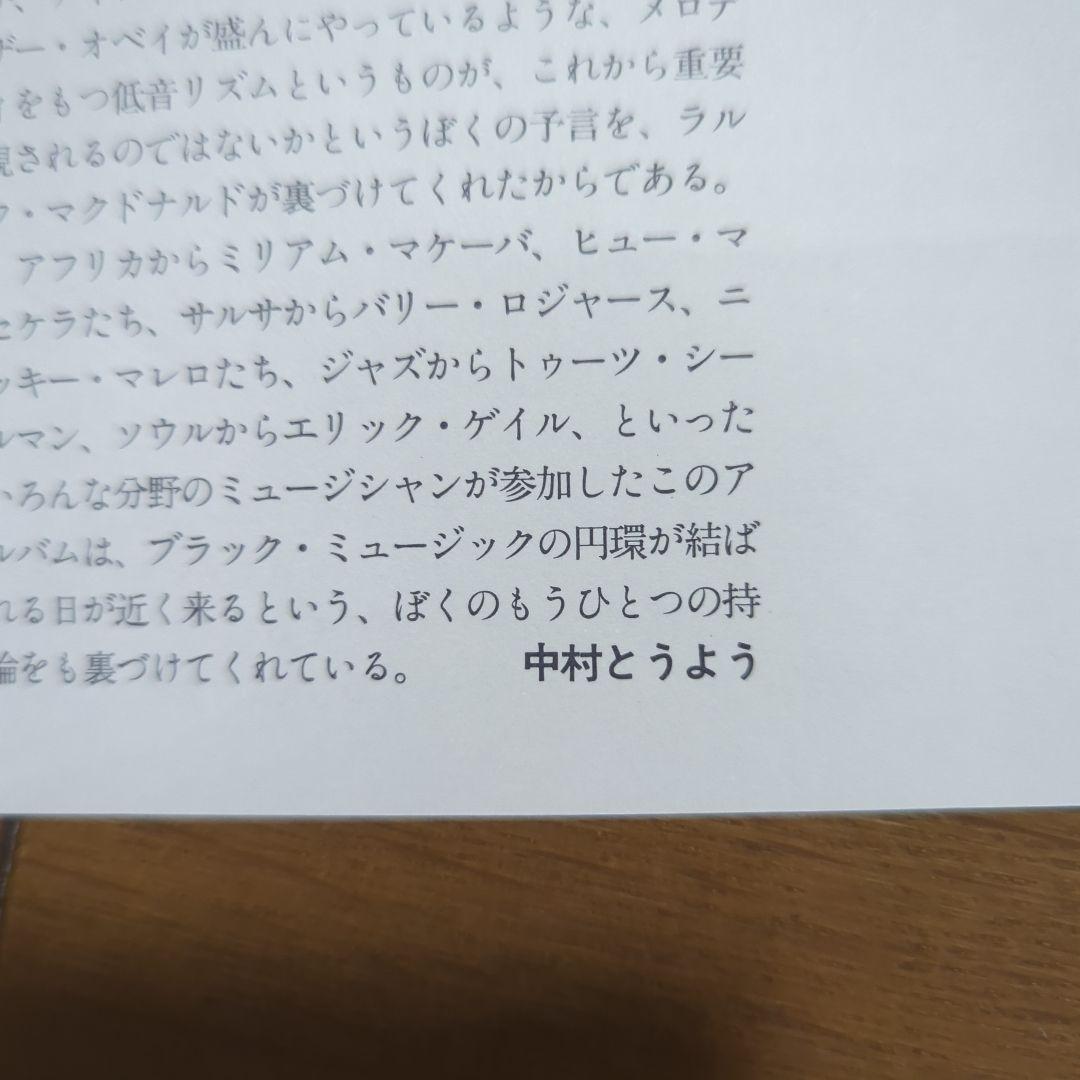 デー・オベイが盛んにやっているような、メロデ
をもつ低音リズムというものが、これから重要
視されるのではないかというぼくの予言を、ラル
・マクドナルドが裏づけてくれたからである。
アフリカからミリアム・マケーバ、ヒュー・マ
セケラたち、サルサからバリー・ロジャース、ニ
ッキー・マレロたち、ジャズからトゥーツ・シー
ルマン、ソウルからエリック・ゲイル、といった
いろんな分野のミュージシャンが参加したこのア
ルバムは、ブラック・ミュージックの円環が結ば
れる日が近く来るという、ぼくのもうひとつの持
論をも裏づけてくれている。 中村とうよう